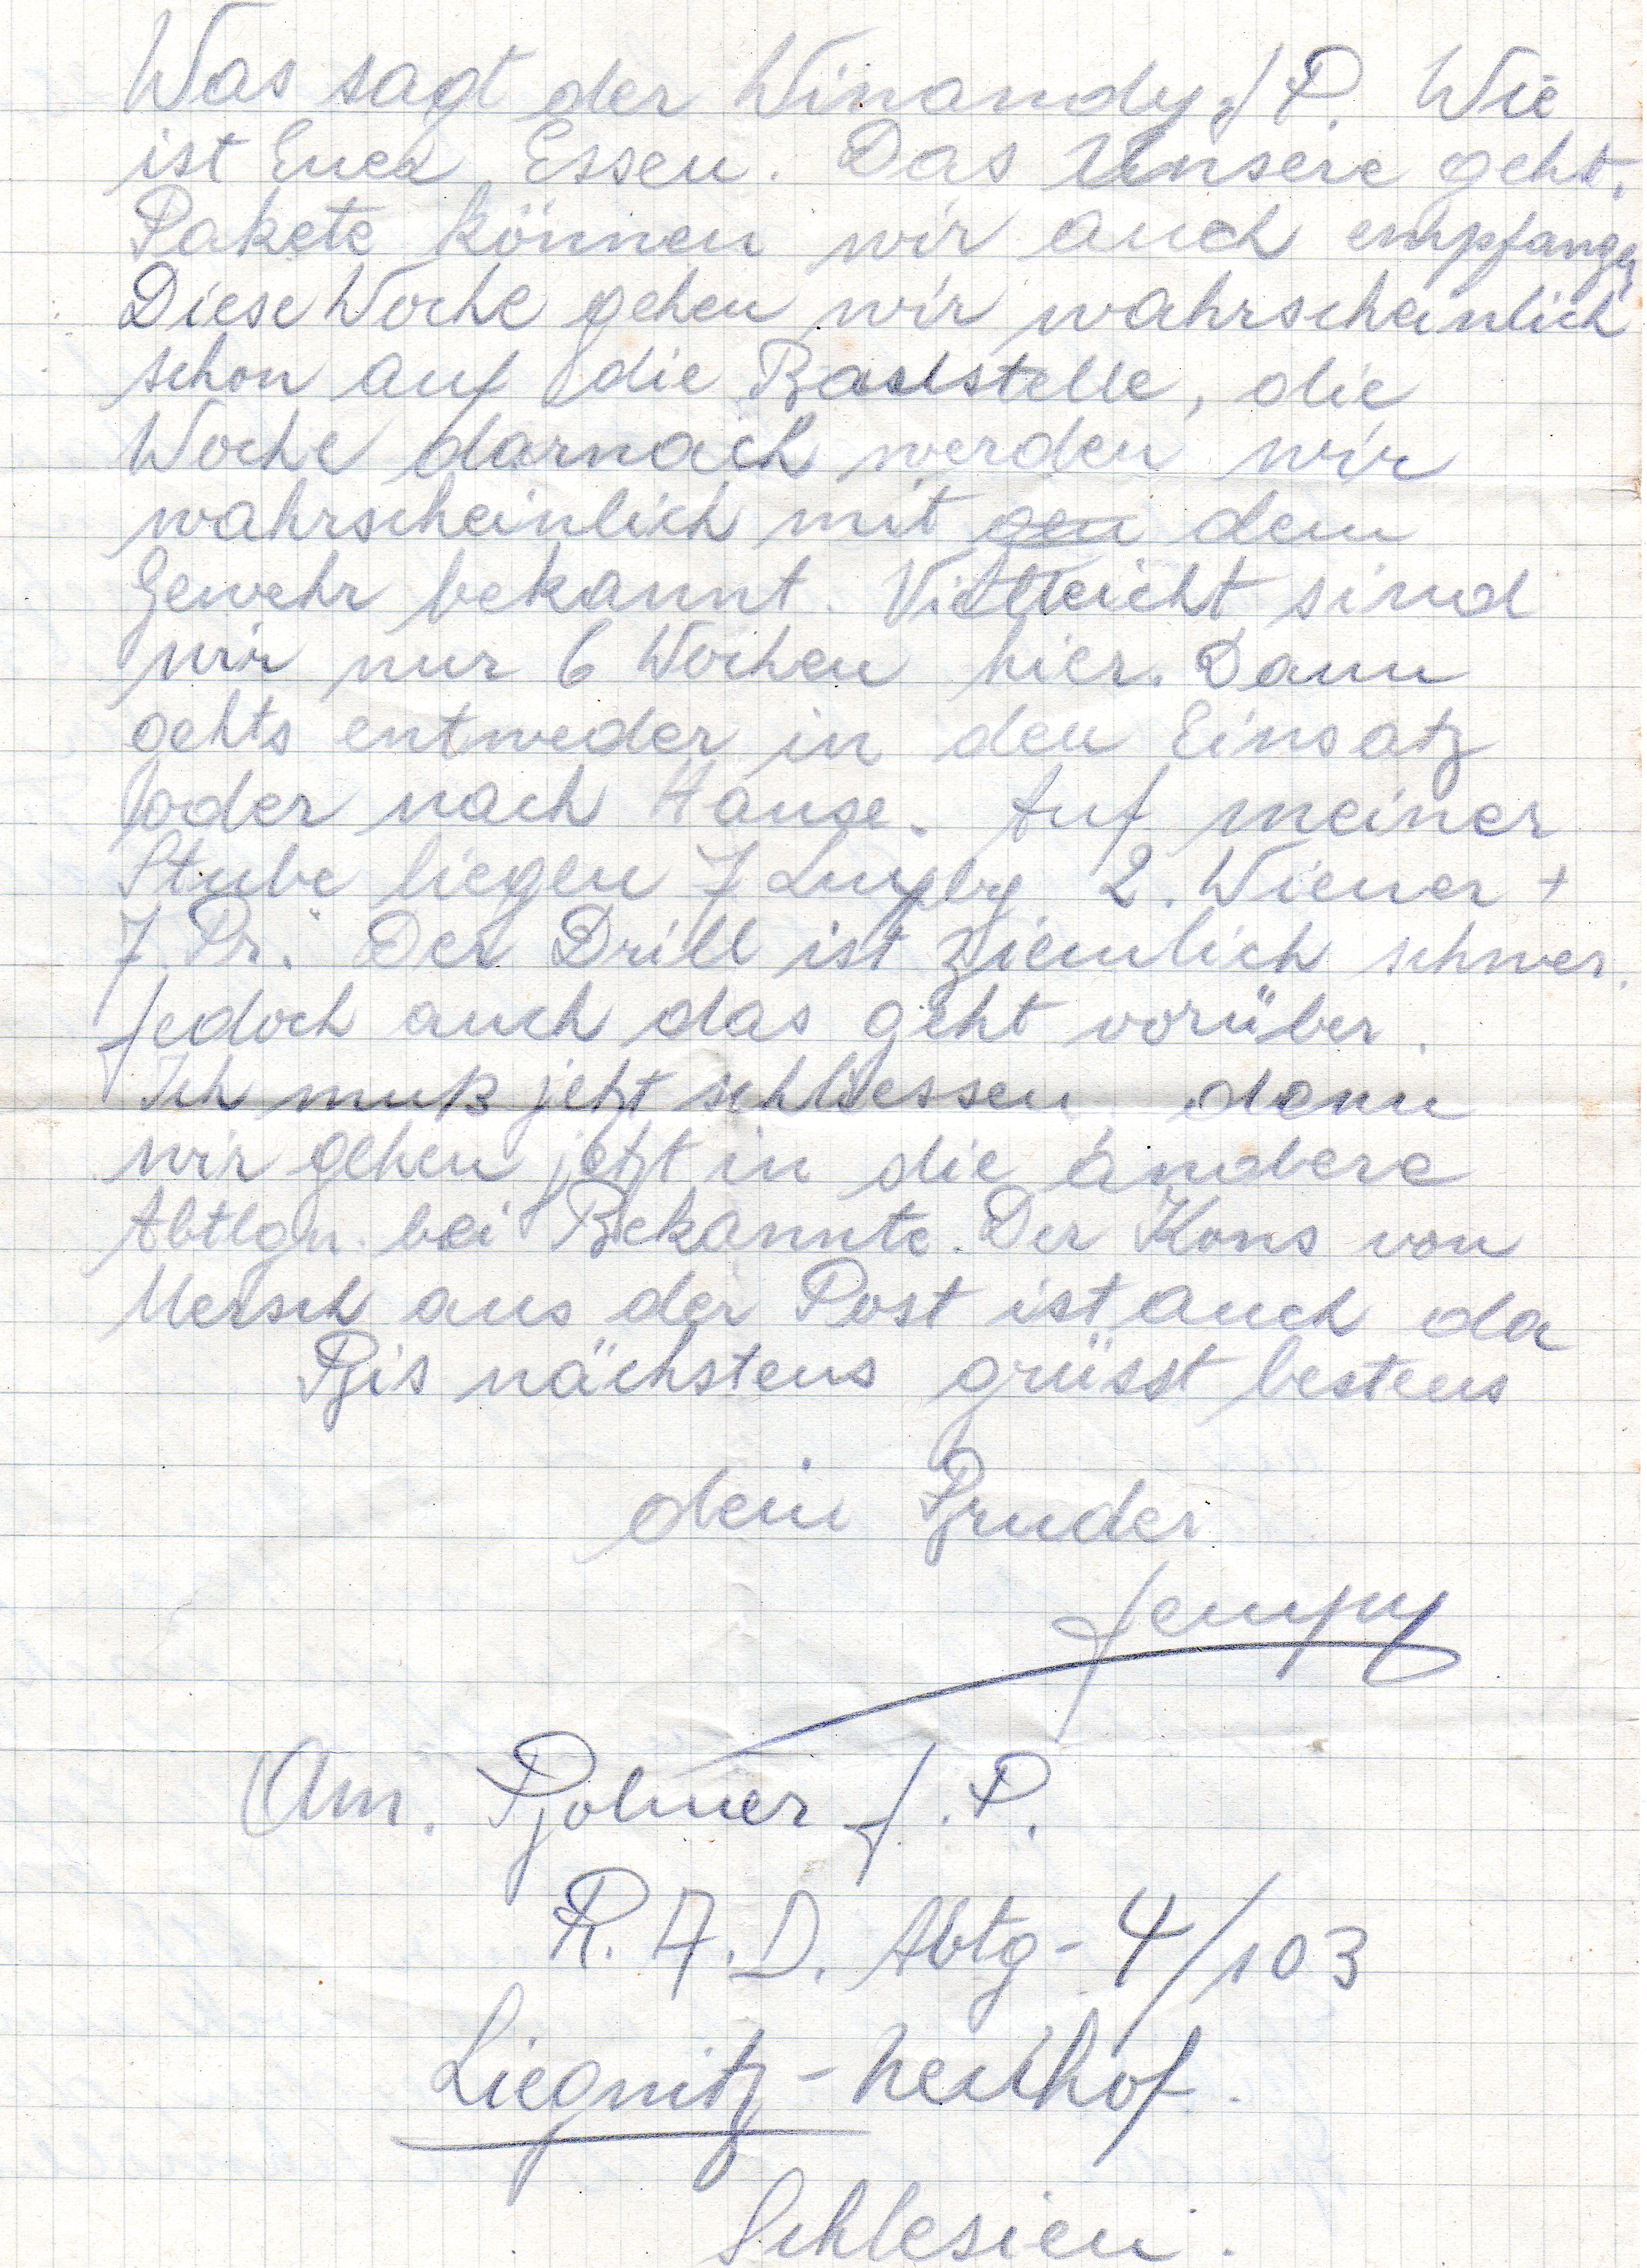 Was sagt der Winandy J P. Wie
ist Euer Essen. Das Unsere geht.
Pakete können wir auch empfangen
Diese Woche gehen wir wahrscheinlich
schon auf die Baustelle, die
Woche darnach werden wir
wahrscheinlich mit gen dem
Gewehr bekannt. Vielleicht sind
wir nur 6 Wochen hier. Dann
gehts entweder in den Einsatz
oder nach Hause. Auf meiner
Stube liegen 7 Luxbg 2. Wiener +
7 Pr. Der Drill ist ziemlich schwer.
Jedoch auch das geht vorüber.
Ich muß jetzt schliessen, denn
wir gehen jetzt in die andere
Abtlgn. bei Bekannte. Der Kons von
Mersch aus der Post ist auch da
Bis nächstens grüsst bestens
dein Bruder
Jempy
Am. J. P.
R. A. D. Abtg - 4/103
Liegnitz - Neuhof.
Schlesien.